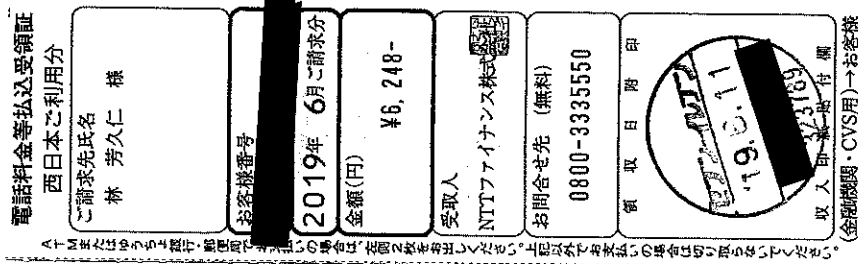 電話料金等払込受領証
西日本ご利用分
ご請求先氏名
林 芳久仁 様
お客様番号
2019年 6月ご請求分
金額(円)
¥6,248-
受取人
NTTファイナンス株式会社
お問合せ先 (無料)
0800-3335550
領収日附印
セブン-イレブン
'19.6.11
323789
収入印紙貼付欄
(金融機関・CVS用)→お客様
ATMまたはゆうちょ銀行・郵便局でお支払いの場合は、右側2枚をお出しください。上記以外でお支払いの場合は切り取らないでください。